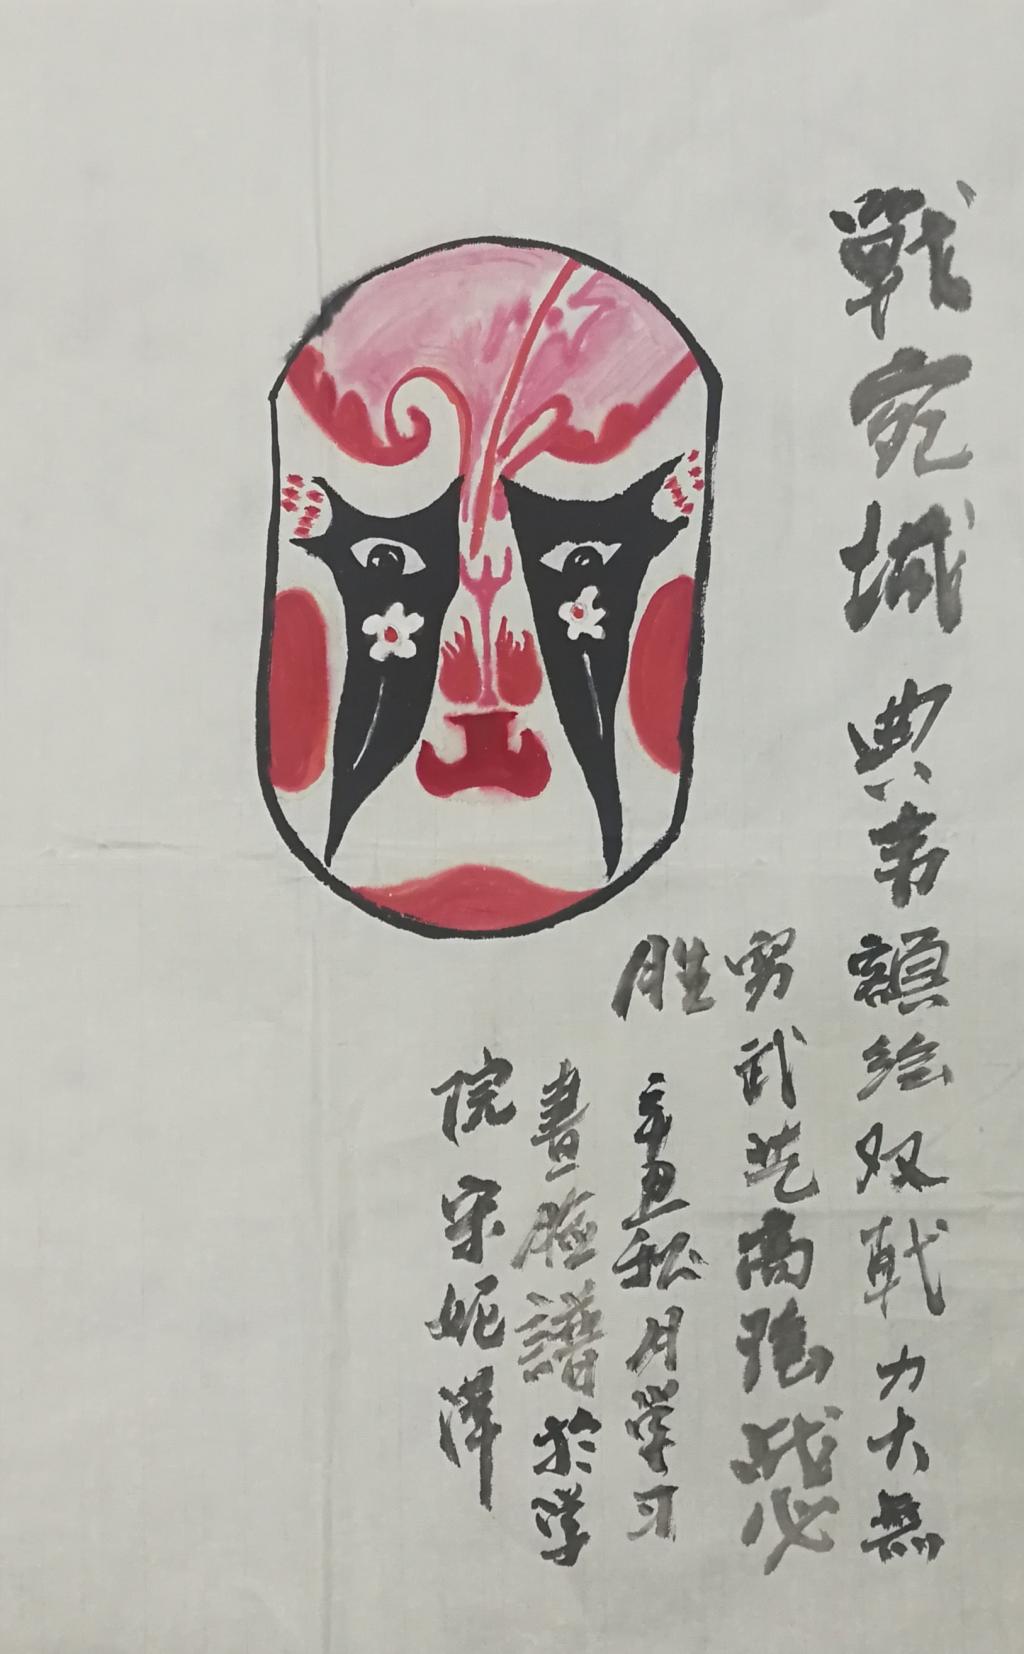 戰宛城 典韦額绘双戟力大無
穷武艺高强战必
胜 辛丑秋月学习
畫臉譜於学
院宋妮澤